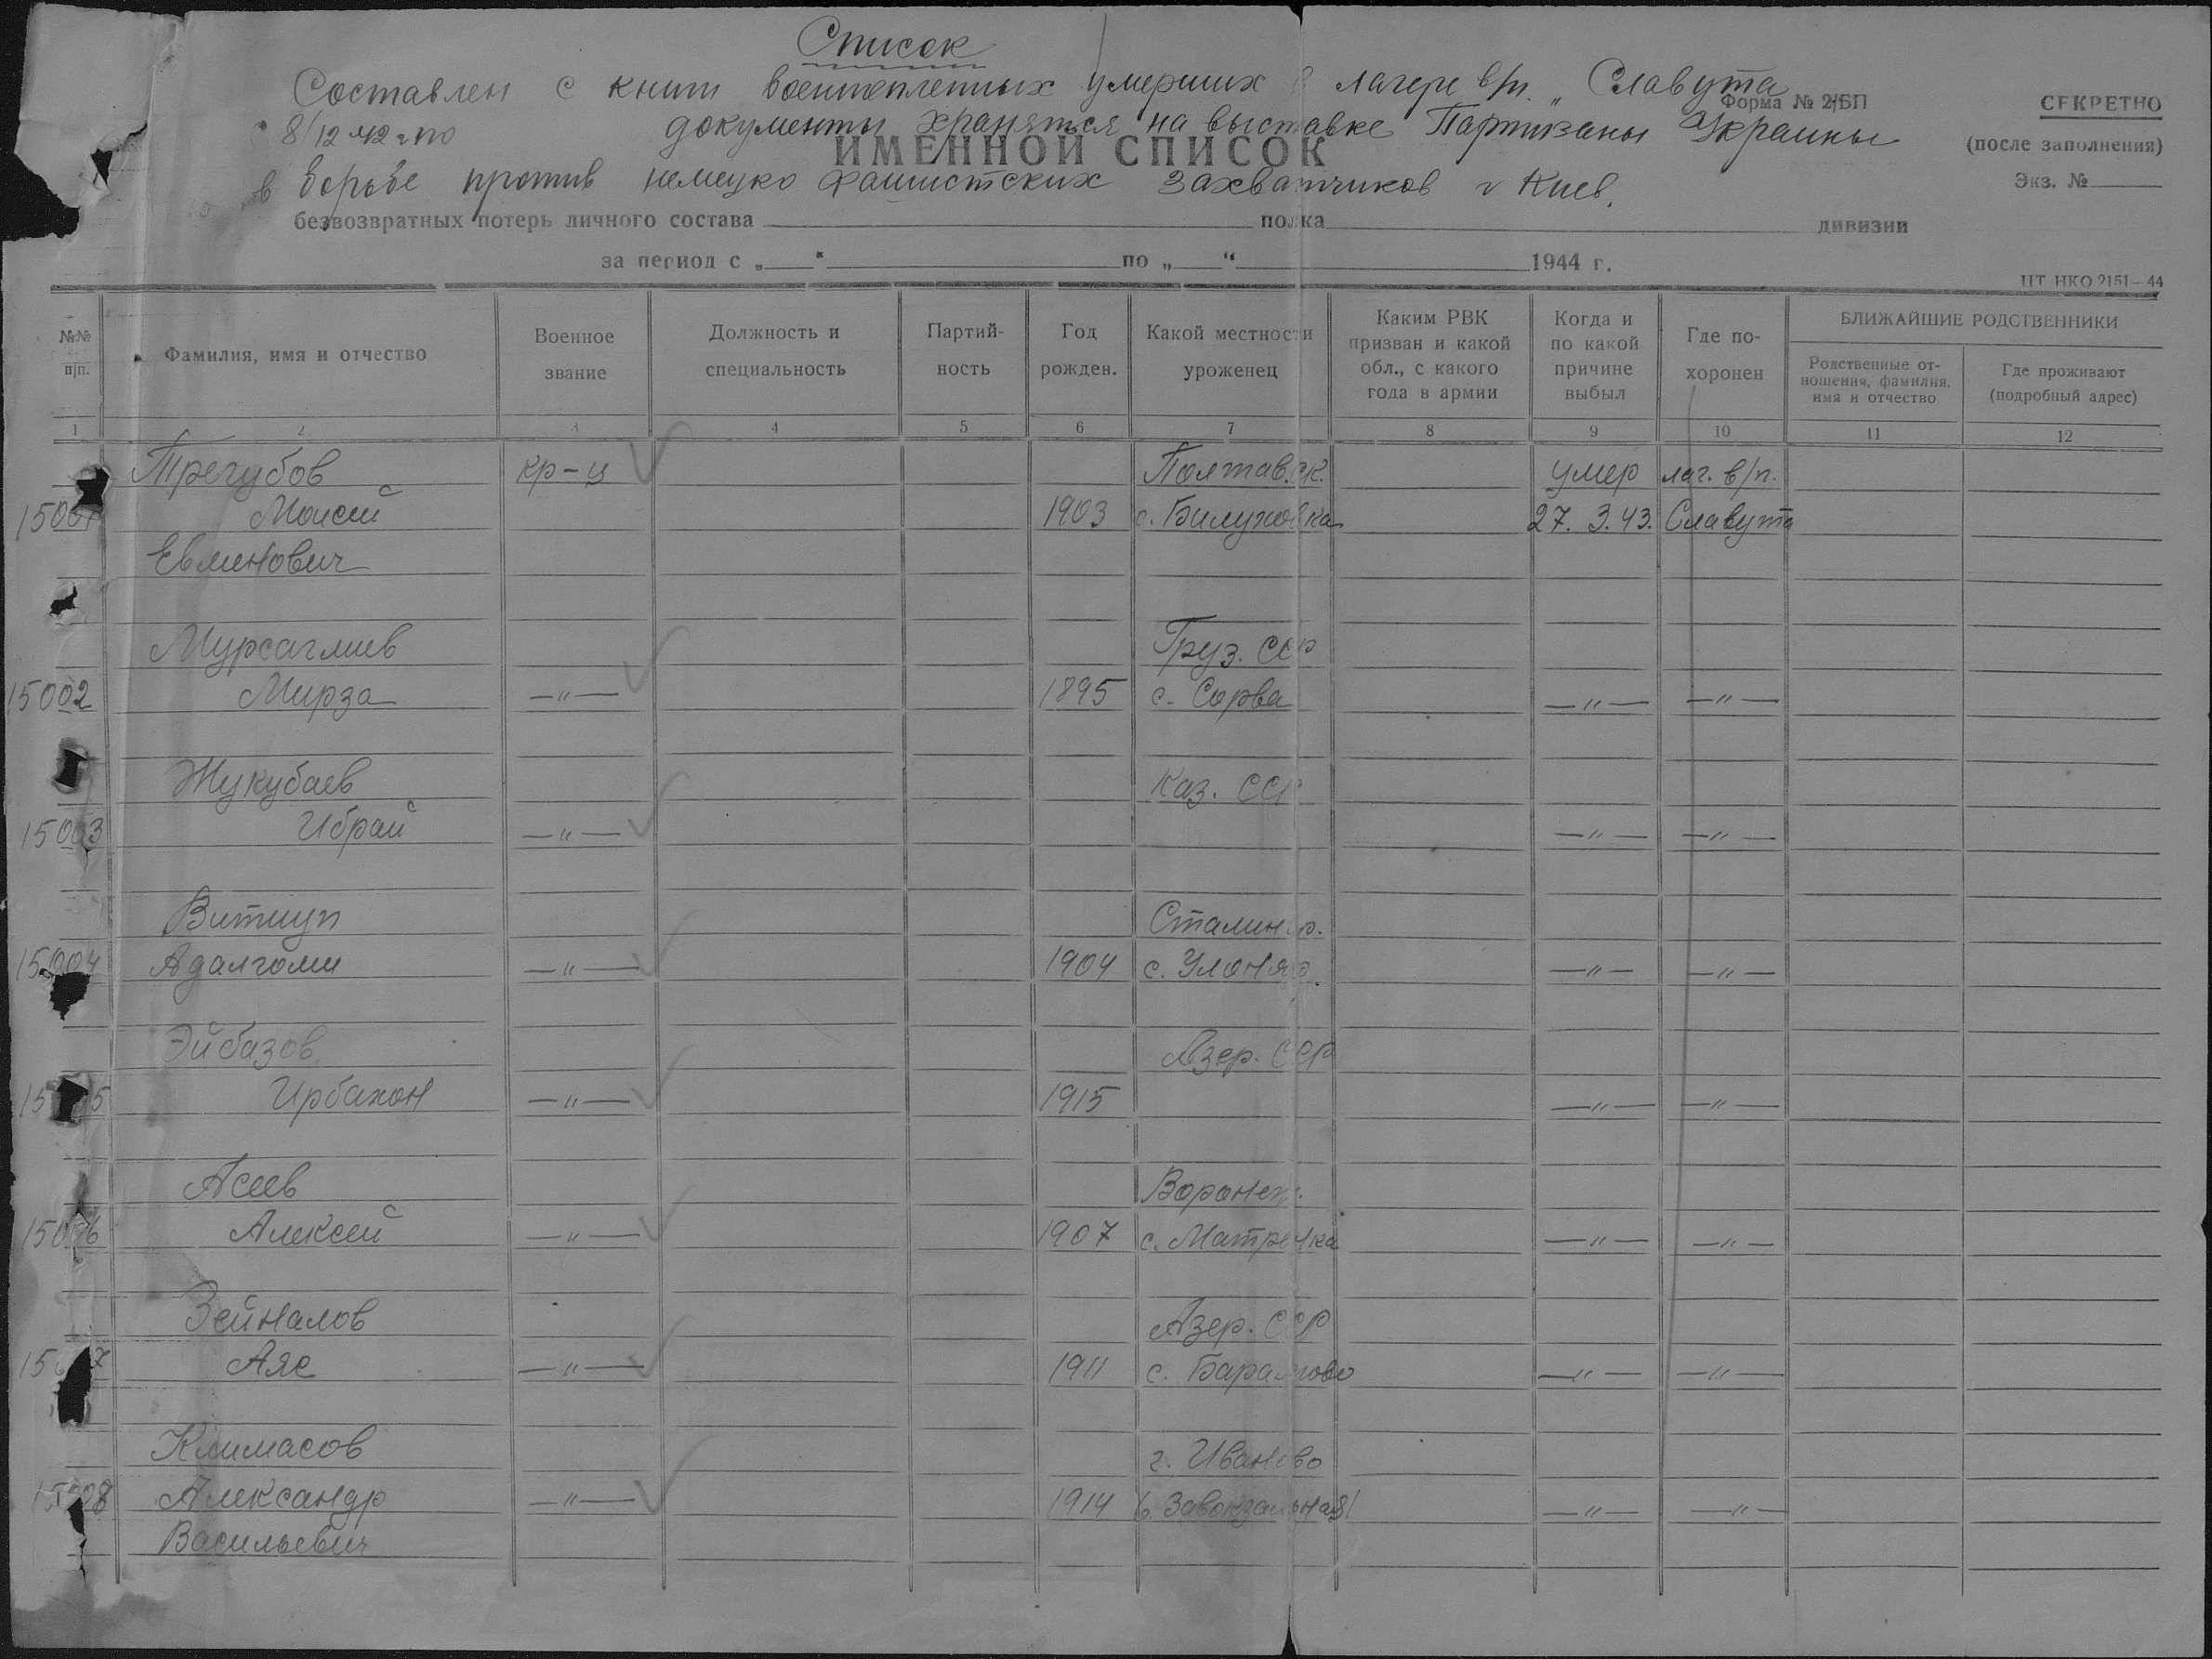 Список
Составлен с книги военнопленных умерших в лагере в/п. „ Славута
Форма № 2/БП
СЕКРЕТНО
8/12 42 г по документы хранятся на выставке Партизаны Украины
ИМЕННОЙ СПИСОК
(после заполнения)
в борьбе против немецко фашистских захватчиков г Киев.
Экз. №
безвозвратных потерь личного состава полка дивизии
за период с „ “ по „ “ 1944 г.
ЦТ НКО 2151—44
№№ п/п.
Фамилия, имя и отчество
Военное звание
Должность и специальность
Партий- ность
Год рожден.
Какой местности уроженец
Каким РВК призван и какой обл., с какого года в армии
Когда и по какой причине выбыл
Где по- хоронен
БЛИЖАЙШИЕ РОДСТВЕННИКИ
Родственные от- ношения, фамилия, имя и отчество
Где проживают (подробный адрес)
1 2 3 4 5 6 7 8 9 10 11 12
Трегубов кр-ц Полтавск. умер лаг. в/п.
15001 Моисей 1903 с. Билуховка 27. 3. 43. Славута
Евменович
Мурсаглиев Груз. ССР
15002 Мирза —"— 1895 с. Сорва —"— —"—
Жукубаев Каз. ССР
15003 Ибрай —"— —"— —"—
Витиуп Сталин р.
15004 Адалгоми —"— 1904 с. —"— —"—
Эйбазов Азер. ССР
Ирбахон —"— 1915 —"— —"—
Асеев Воронеж.
15006 Алексей —"— 1907 с. Матренка —"— —"—
Зейналов Азер. ССР
Аяс —"— 1911 с. —"— —"—
Климасов г. Иваново
Александр —"— 1914 Завокзальная —"— —"—
Васильевич